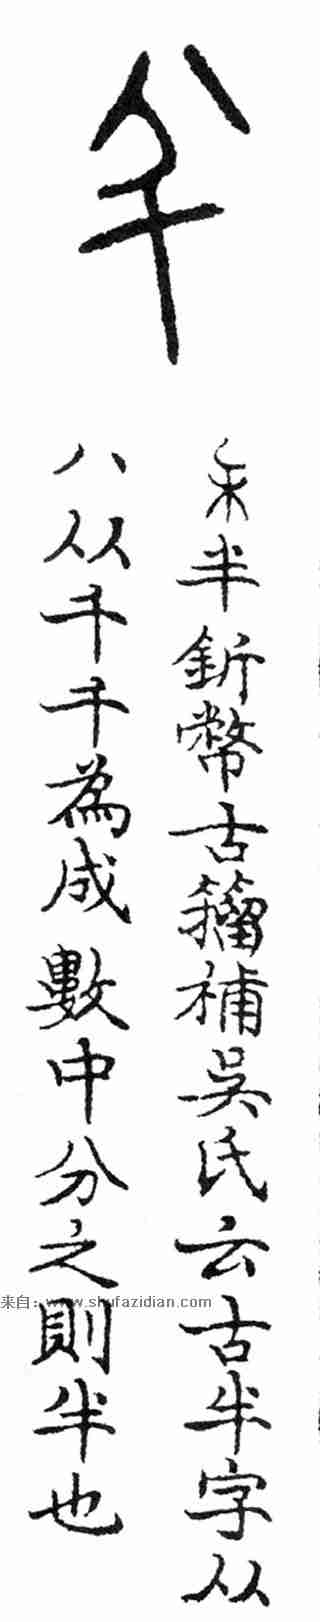 半釿幣古籀補吳氏云古半字从
八从千千為成數中分之則半也
来自：www.shufazidian.com